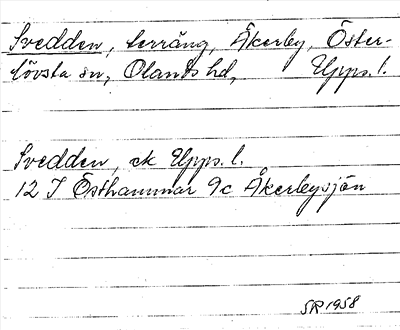 Svedden, terräng, Åkerby, Öster-
lövsta sn, Olands hd, Upps. l.
Svedden, ek Upps. l.
12 I Östhammar 9c Åkerbysjön
SR 1958